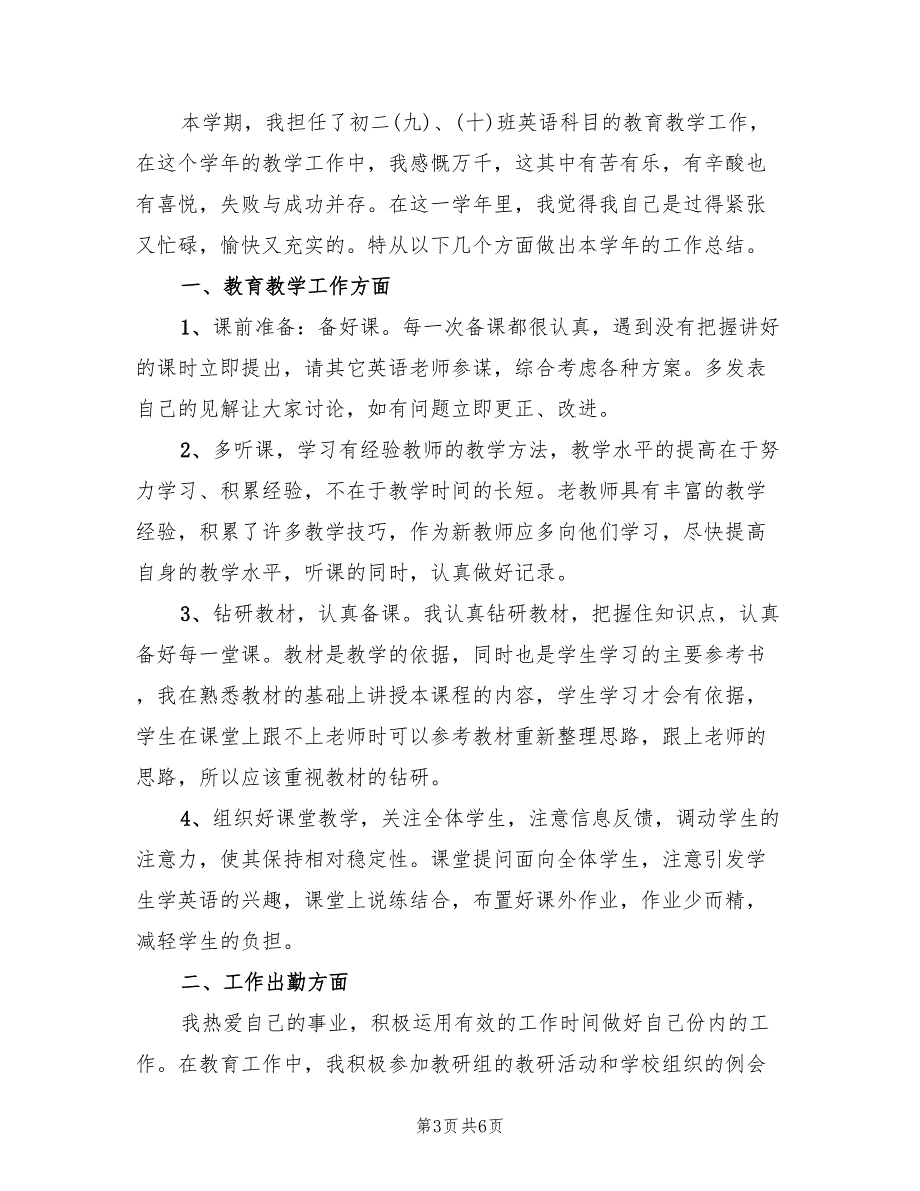 本学期，我担任了初二(九)、(十)班英语科目的教育教学工作，
在这个学年的教学工作中，我感慨万千，这其中有苦有乐，有辛酸也
有喜悦，失败与成功并存。在这一学年里，我觉得我自己是过得紧张
又忙碌，愉快又充实的。特从以下几个方面做出本学年的工作总结。
一、教育教学工作方面
1、课前准备：备好课。每一次备课都很认真，遇到没有把握讲好
的课时立即提出，请其它英语老师参谋，综合考虑各种方案。多发表
自己的见解让大家讨论，如有问题立即更正、改进。
2、多听课，学习有经验教师的教学方法，教学水平的提高在于努
力学习、积累经验，不在于教学时间的长短。老教师具有丰富的教学
经验，积累了许多教学技巧，作为新教师应多向他们学习，尽快提高
自身的教学水平，听课的同时，认真做好记录。
3、钻研教材，认真备课。我认真钻研教材，把握住知识点，认真
备好每一堂课。教材是教学的依据，同时也是学生学习的主要参考书
，我在熟悉教材的基础上讲授本课程的内容，学生学习才会有依据，
学生在课堂上跟不上老师时可以参考教材重新整理思路，跟上老师的
思路，所以应该重视教材的钻研。
4、组织好课堂教学，关注全体学生，注意信息反馈，调动学生的
注意力，使其保持相对稳定性。课堂提问面向全体学生，注意引发学
生学英语的兴趣，课堂上说练结合，布置好课外作业，作业少而精，
减轻学生的负担。
二、工作出勤方面
我热爱自己的事业，积极运用有效的工作时间做好自己份内的工
作。在教育工作中，我积极参加教研组的教研活动和学校组织的例会
第3页 共6页